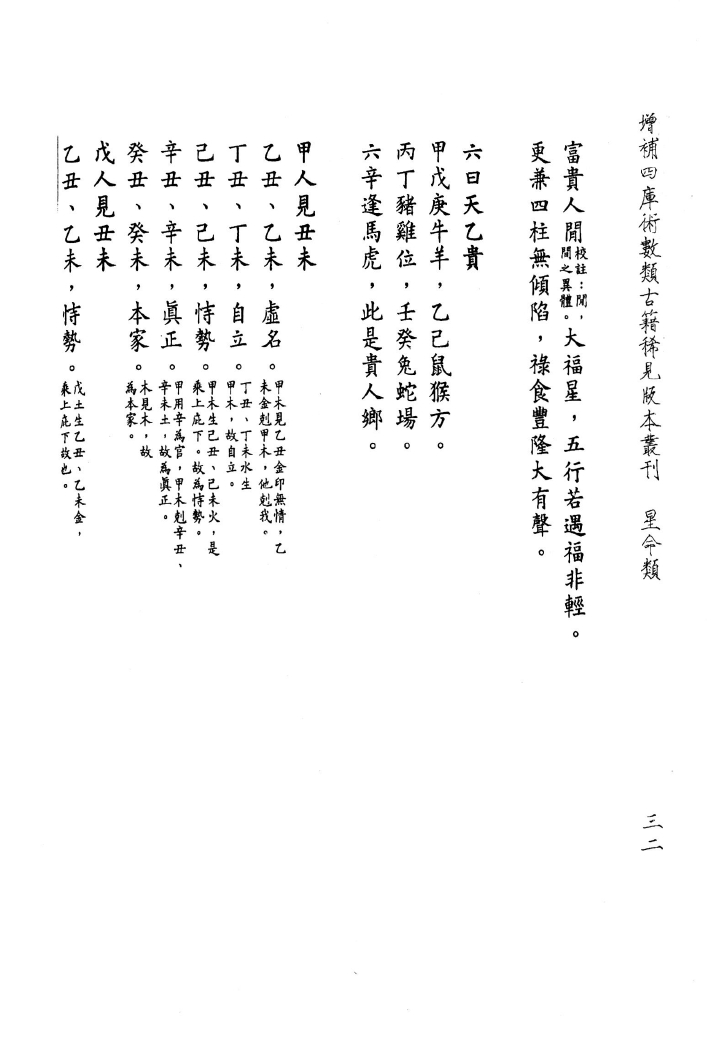 增補四庫術數類古籍稀見版本叢刊　星命類
三二
富貴人閒校註：閒，間之異體。大福星，五行若遇福非輕。
更兼四柱無傾陷，祿食豐隆大有聲。
六曰天乙貴
甲戊庚牛羊，乙己鼠猴方。
丙丁豬雞位，壬癸兔蛇場。
六辛逢馬虎，此是貴人鄉。
甲人見丑未
乙丑、乙未，虛名。甲木見乙丑金印無情，乙未金剋甲木，他剋我。
丁丑、丁未，自立。丁丑、丁未水生甲木，故自立。
己丑、己未，恃勢。甲木生己丑、己未火，是乘上庇下。故為恃勢。
辛丑、辛未，眞正。甲用辛為官，甲木剋辛丑、辛未土，故為眞正。
癸丑、癸未，本家。木見木，故為本家。
戊人見丑未
乙丑、乙未，恃勢。戊土生乙丑、乙未金，乘上庇下故也。